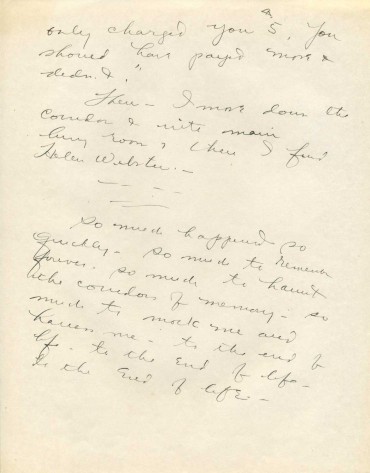 only charged you $5. You
should have payed more &
didn't."
Then - I move down the
corridor & into main
living room & there I find
Helen Webster. -
So much happened so
quickly - so much to remember
forever. so much to haunt
the corridors of memory - so
much to mock me and
harass me - to the end of
life. to the end of life -
to the end of life -